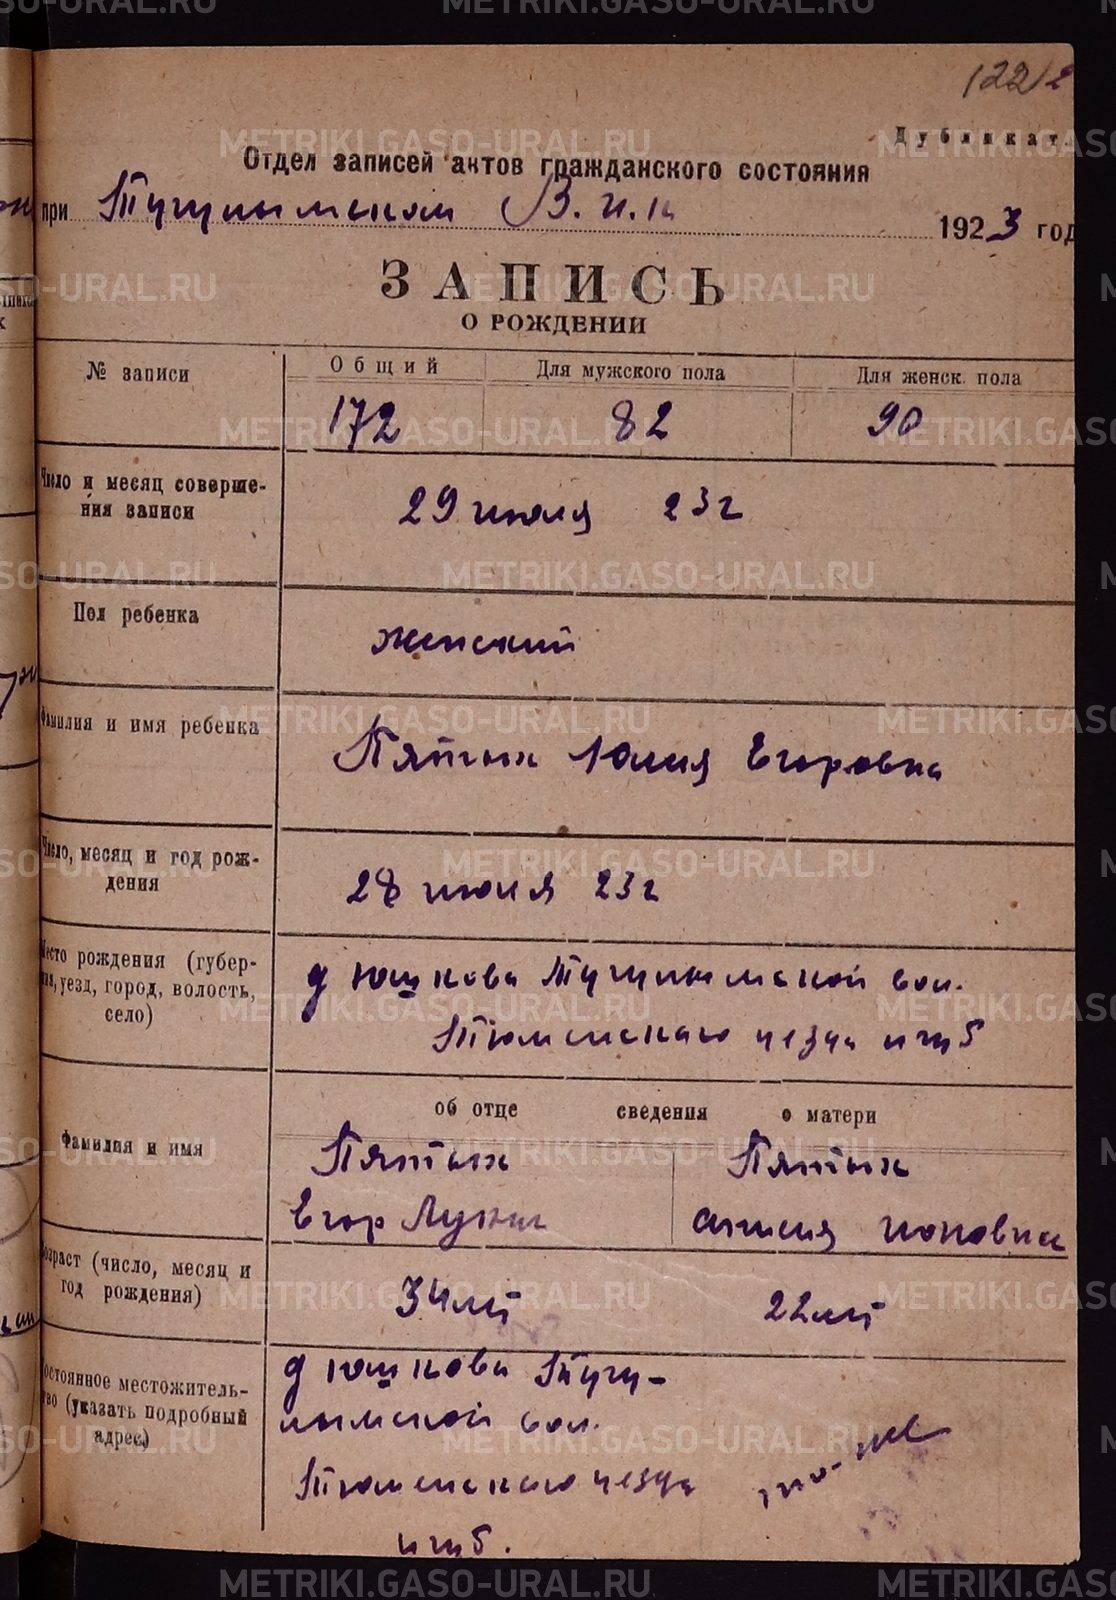 122
Дубликат
Отдел записей актов гражданского состояния
при Тугулымском В.и.к 1923 год
ЗАПИСЬ
О РОЖДЕНИИ
№ записи Общий Для мужского пола Для женск. пола
172 82 90
Число и месяц соверше-
ния записи
29 июля 23г
Пол ребенка
женский
Фамилия и имя ребенка
Пятых Юлия Егоровна
Число, месяц и год рож-
дения
28 июля 23г
Место рождения (губер-
ния, уезд, город, волость,
село)
д Юшкова Тугулымской вол.
Тюменскаго уезда
об отце сведения о матери
Фамилия и имя
Пятых Пятых
Егор
Возраст (число, месяц и
год рождения)
34 лет 22 лет
Постоянное местожитель-
ство (указать подробный
адрес)
д Юшкова Тугу-
лымской вол.
Тюменскаго уезда
то-же
METRIKI.GASO-URAL.RU